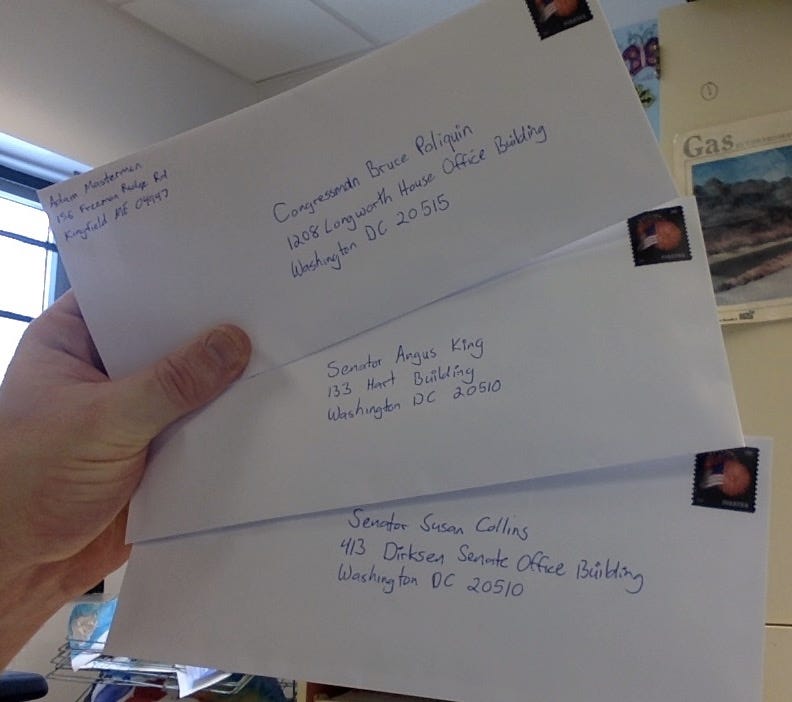 Adam Masterman
156 Freeman Ridge Rd
Kingfield ME 04947
Congressman Bruce Poliquin
1208 Longworth House Office Building
Washington DC 20515
Senator Angus King
133 Hart Building
Washington DC 20510
Senator Susan Collins
413 Dirksen Senate Office Building
Washington DC 20510
Gas
FOREVER
FOREVER
FOREVER